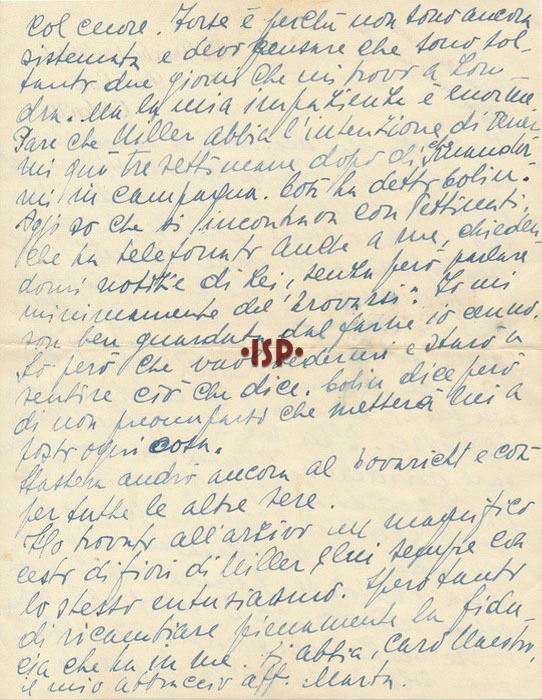 col cuore. Forse è perché non sono ancora
sistemata e devo pensare che sono sol-
tanto due giorni che mi trovo a Lon-
dra. Ma la mia impazienza è enorme.
Pare che Miller abbia l'intenzione di tener-
mi qua tre settimane dopo di
mi in campagna. Così ha detto Colin.
Oggi so che si incontrava con Pettinati,
che ha telefonato anche a me, chieden-
domi notizie di Lei, senza però parlare
minimamente del "trovarsi". Io mi
son ben guardata dal farne io cenno.
So però che vuole vedermi e starò a
sentire ciò che dice. Colin dice però
di non preoccuparsi che metterà lui a
posto ogni cosa.
Stasera andrò ancora al e così
per tutte le altre sere.
Ho trovato all'arrivo un magnifico
cesto di fiori di Miller, lui sempre con
lo stesso entusiasmo. Spero tanto
di ricambiare pienamente la fidu-
cia che ha in me. Si abbia, caro Maestro,
il mio abbraccio aff. Marta.
•ISP•